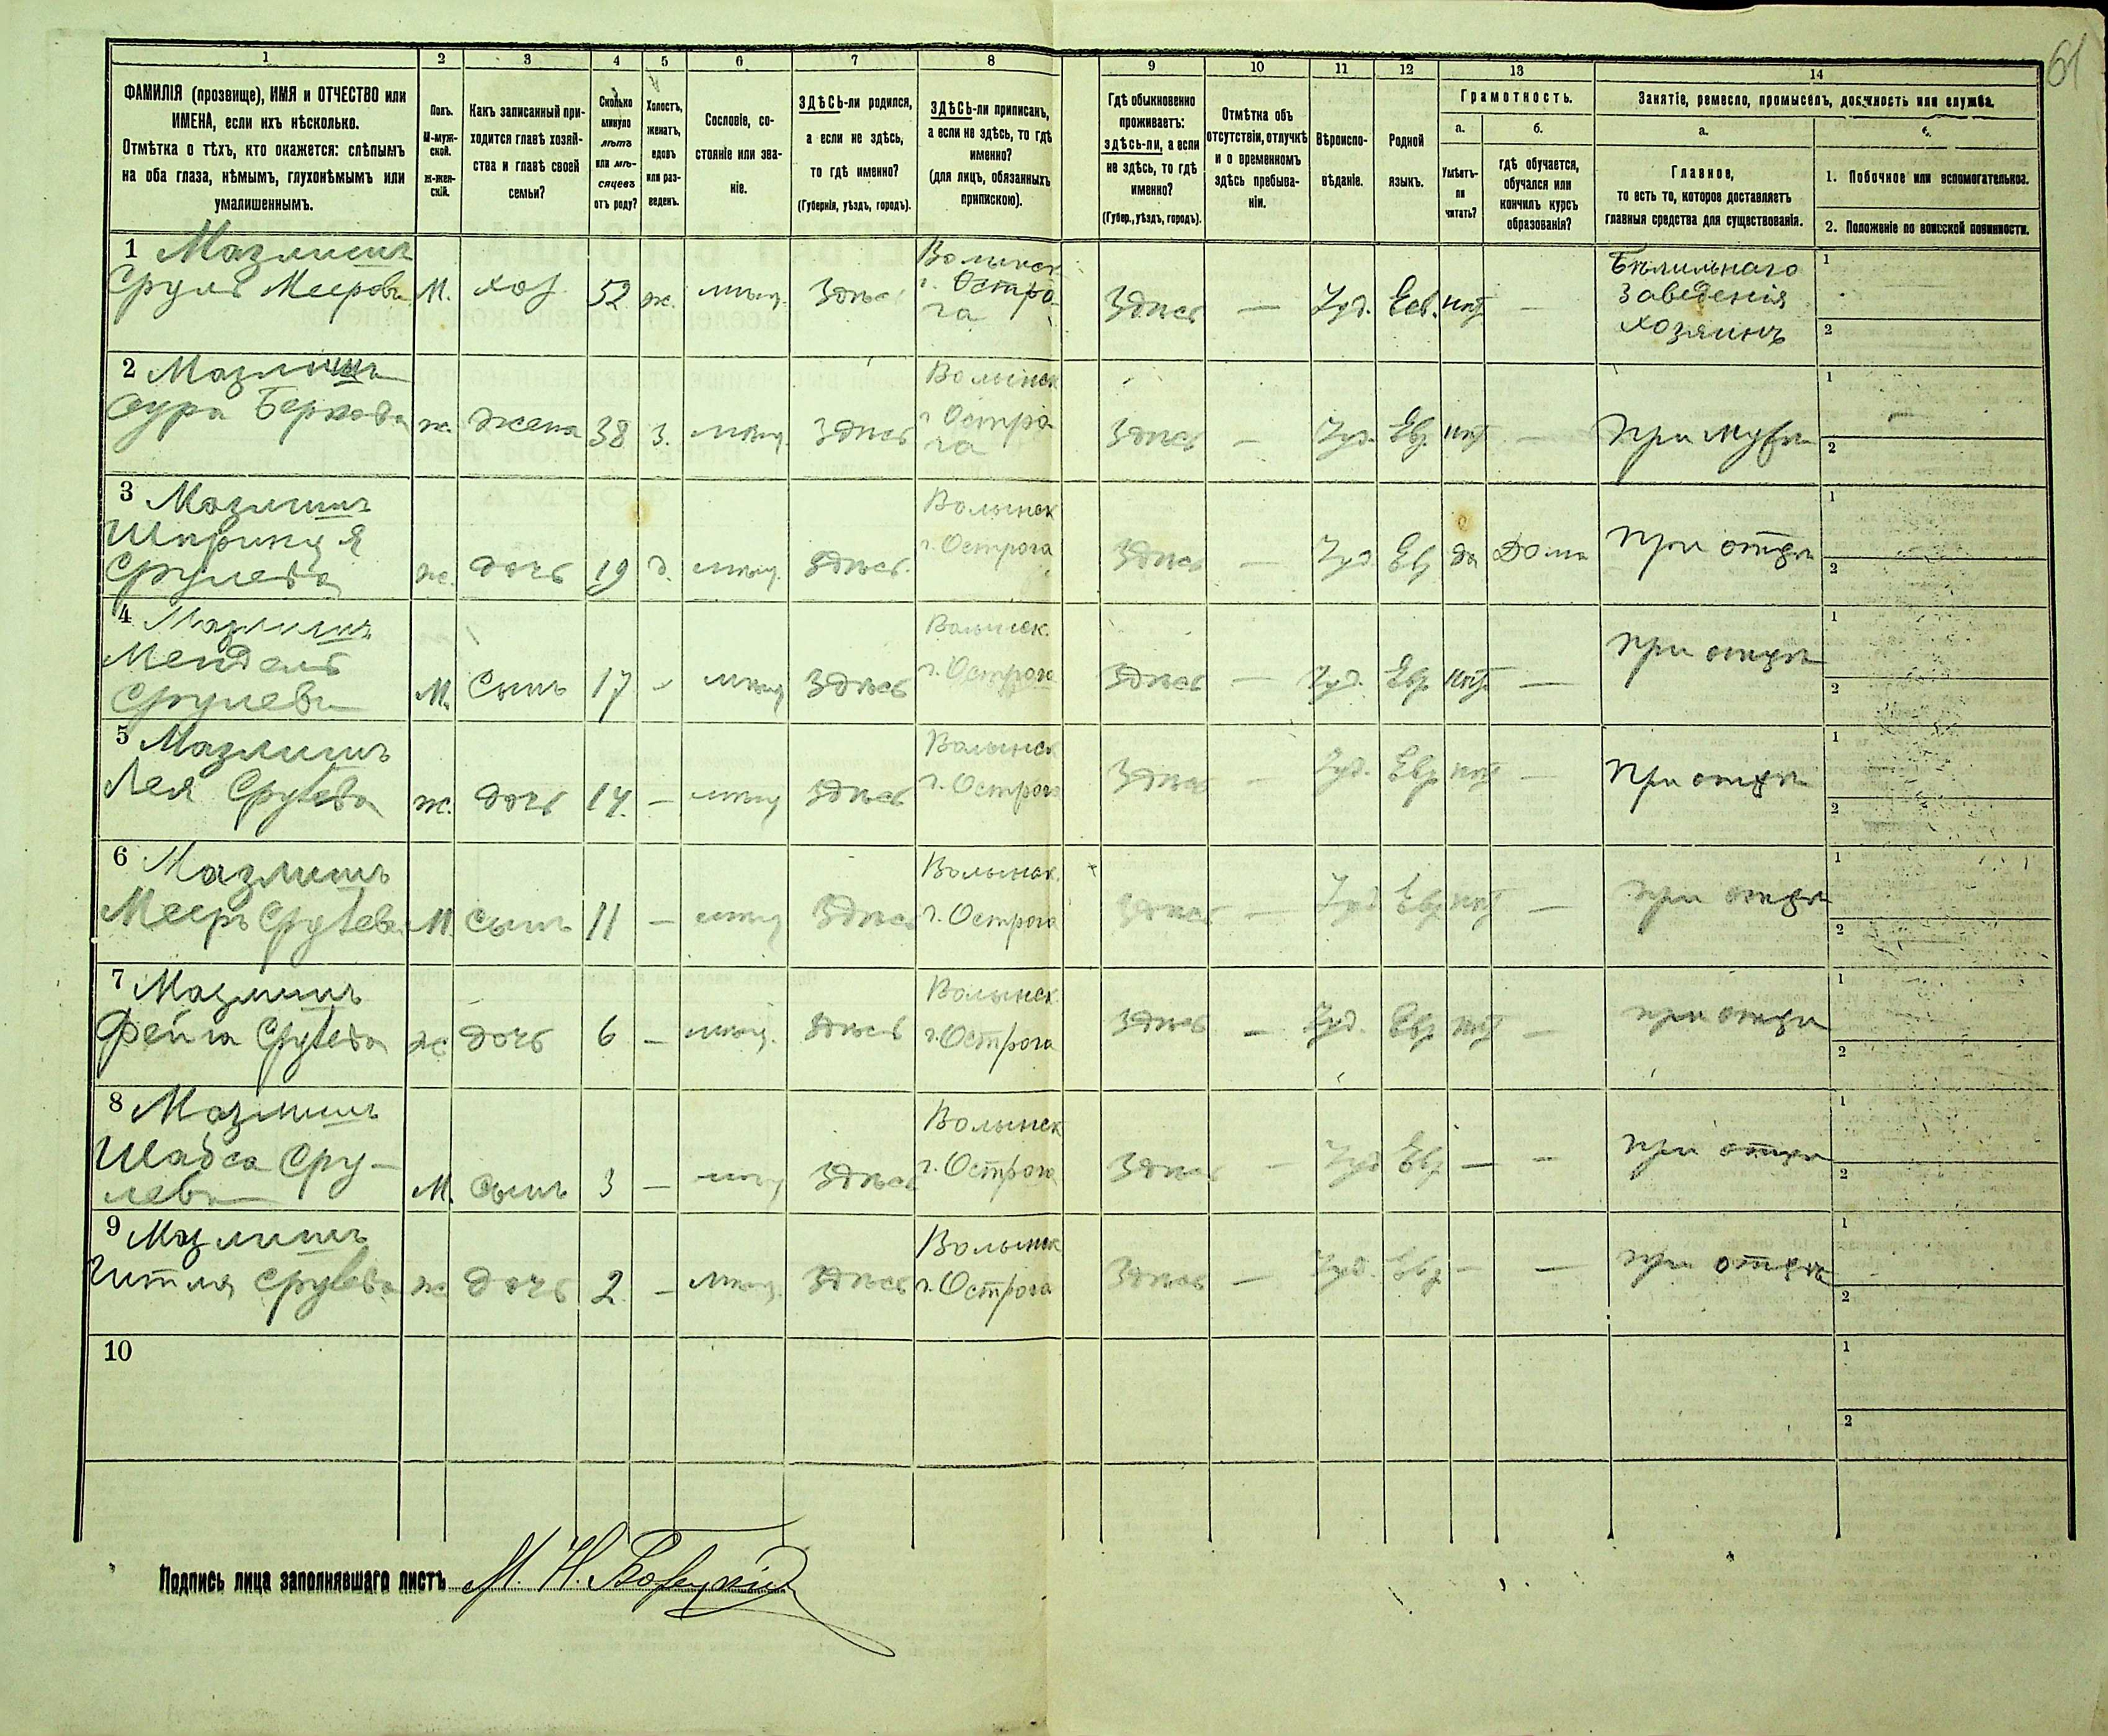 61
1 2 3 4 5 6 7 8 9 10 11 12 13 14
ФАМИЛІЯ (прозвище), ИМЯ и ОТЧЕСТВО или
ИМЕНА, если ихъ нѣсколько.
Отмѣтка о тѣхъ, кто окажется: слѣпымъ
на оба глаза, нѣмымъ, глухонѣмымъ или
умалишеннымъ.
Полъ.
М-муж-
ской.
ж-жен-
скій.
Какъ записанный при-
ходится главѣ хозяй-
ства и главѣ своей
семьи?
Сколько
минуло
лѣтъ
или мѣ-
сяцевъ
отъ роду?
Холостъ,
женатъ,
вдовъ
или раз-
веденъ.
Сословіе, со-
стояніе или зва-
ніе.
ЗДѢСЬ-ли родился,
а если не здѣсь,
то гдѣ именно?
(Губернія, уѣздъ, городъ).
ЗДѢСЬ-ли приписанъ,
а если не здѣсь, то гдѣ
именно?
(для лицъ, обязанныхъ
припискою).
Гдѣ обыкновенно
проживаетъ:
здѣсь-ли, а если
не здѣсь, то гдѣ
именно?
(Губер., уѣздъ, городъ).
Отмѣтка объ
отсутствіи, отлучкѣ
и о временномъ
здѣсь пребыва-
ніи.
Вѣроиспо-
вѣданіе.
Родной
языкъ.
Грамотность.
а.
Умѣетъ-
ли
читать?
б.
гдѣ обучается,
обучался или
кончилъ курсъ
образованія?
Занятіе, ремесло, промыселъ, должность или служба.
а.
Главное,
то есть то, которое доставляетъ
главныя средства для существованія.
б.
1. Побочное или вспомогательное.
2. Положеніе по воинской повинности.
1 Мазлишъ Волынск Бѣлильнаго 1
Сруль Мееровъ М. хоз. 52 ж. мѣщ. Здѣсь г. Остро- Здѣсь — Іуд. Евр. нѣт — Заведенія
га хозяинъ 2
2 Мазлишъ Волынск 1
Сура Беркова ж. жена 38 з. мѣщ. Здѣсь г. Остро Здѣсь — Іуд. Евр нѣт — При мужѣ
га 2
3 Мазлишъ Волынск 1
г. Острога При отцѣ
Срулева ж. дочь 19 д. мѣщ. Здѣсь. Здѣсь — Іуд. Евр да Дома 2
4 Мазлишъ Волынск. 1
Мендель г. Острога При отцѣ
Срулевъ М. Сынъ 17 - мѣщ Здѣсь Здѣсь — Іуд. Евр нѣт — 2
5 Мазлишъ Волынск 1
Лея Срулева ж. дочь 14. — мѣщ Здѣсь г. Острога Здѣсь — Іуд. Евр нѣт — При отцѣ 2
6 Мазлишъ Волынск. 1
Мееръ Срулевъ М. Сынъ 11 — мѣщ Здѣсь г. Острога Здѣсь — Іуд Евр нѣт — при отцѣ 2
7 Мазлишъ Волынск 1
Фейга Срулева ж дочь 6 — мѣщ. Здѣсь г. Острога Здѣсь — Іуд. Евр нѣт — при отцѣ 2
8 Мазлишъ Волынск 1
Шабса Сру- г. Острога Здѣсь — Іуд Евр — — при отцѣ
левъ М. Сынъ 3 — мѣщ Здѣсь 2
9 Мазлишъ Волынск 1
Гитля Срулева ж дочь 2 — мѣщ. Здѣсь г. Острога Здѣсь — Іуд. Евр — — при отцѣ 2
10 1
2
Подпись лица заполнявшаго листъ М. Н.